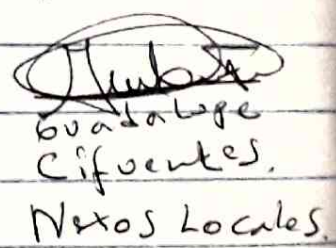 Guadalupe
Cifuentes.
Nexos Locales